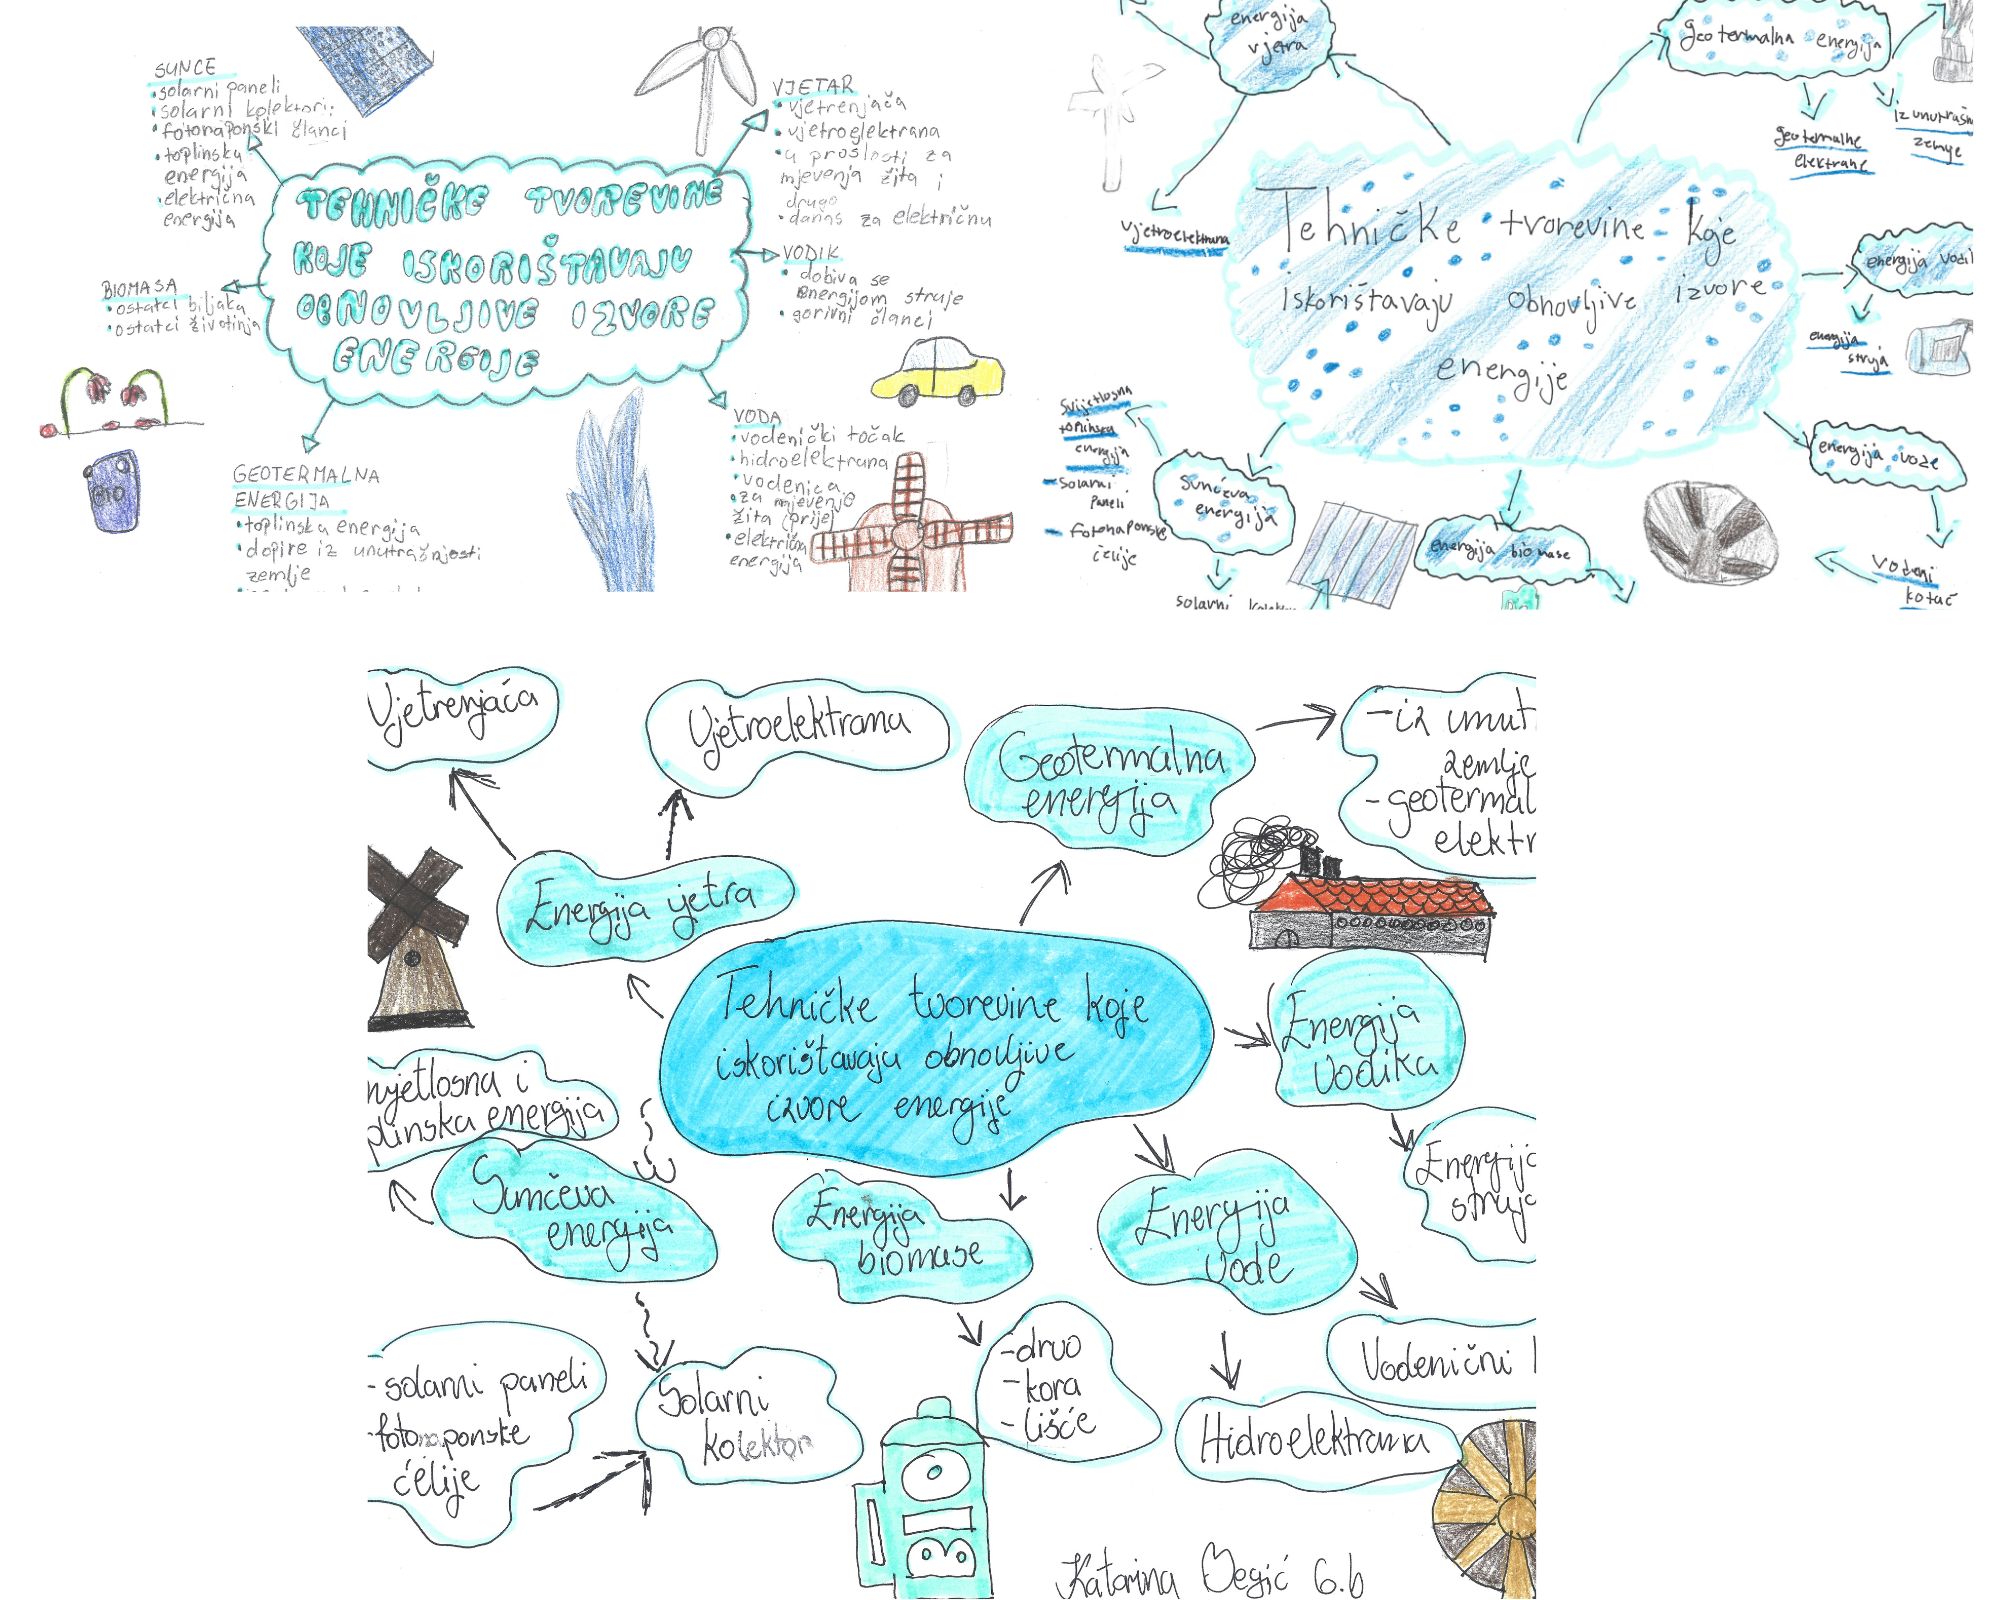 SUNCE
•solarni paneli
•solarni kolektori:
•fotonaponski članci
•toplinska
energija
•električna
energija
BIOMASA
•ostatci biljaka
•ostatci životinja
TEHNIČKE TVOREVINE
KOJE ISKORIŠTAVAJU
OBNOVLJIVE IZVORE
ENERGIJE
VJETAR
•vjetrenjača
•vjetroelektrana
•u proslosti za
mjevenja žita i
drugo
•danas za električnu
VODIK
• dobiva se
energijom struje
•gorivni članci
VODA
•vodenički točak
•hidroelektrana
•vodenica
•za mjevenje
žita (prije)
•električna
energija
GEOTERMALNA
ENERGIJA
•toplinska energija
•dopire iz unutrašnjosti
zemlje
BIO
energija
vjetra
geotermalna energija
geotermalne
elektrane
iz unutrašn
zemje
vjetroelektrana
Tehničke tvorevine koje
iskorištavaju obnovljive izvore
energije
energija vodi
energija
struja
energija vode
vodeni
kotač
svijetlosna
toplinska
energija
- solarni
paneli
- fotonaponske
ćelije
sunčeva
energija
solarni kolekt
energija biomase
Vjetrenjaća
Vjetroelektrana
Geotermalna
energija
-iz unut
zemlje
-geotermal
elektr
Energija vjetra
Tehničke tvorevine koje
iskorištavaju obnovljive
izvore energije
Energija
vodika
Energija
struja
njetlosna i
plinska energija
Sunčeva
energija
Energija
biomase
Energija
vode
-solarni paneli
-fotonaponske
ćelije
Solarni
kolektor
-drvo
-kora
-lišće
Vodenični
Hidroelektrana
BIO
Katarina Begić 6.b